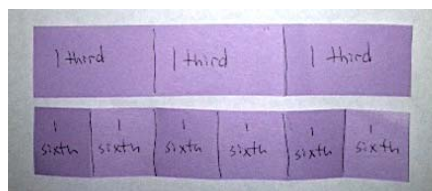 1 third 1 third 1 third
1 1 1 1 1 1
sixth sixth sixth sixth sixth sixth